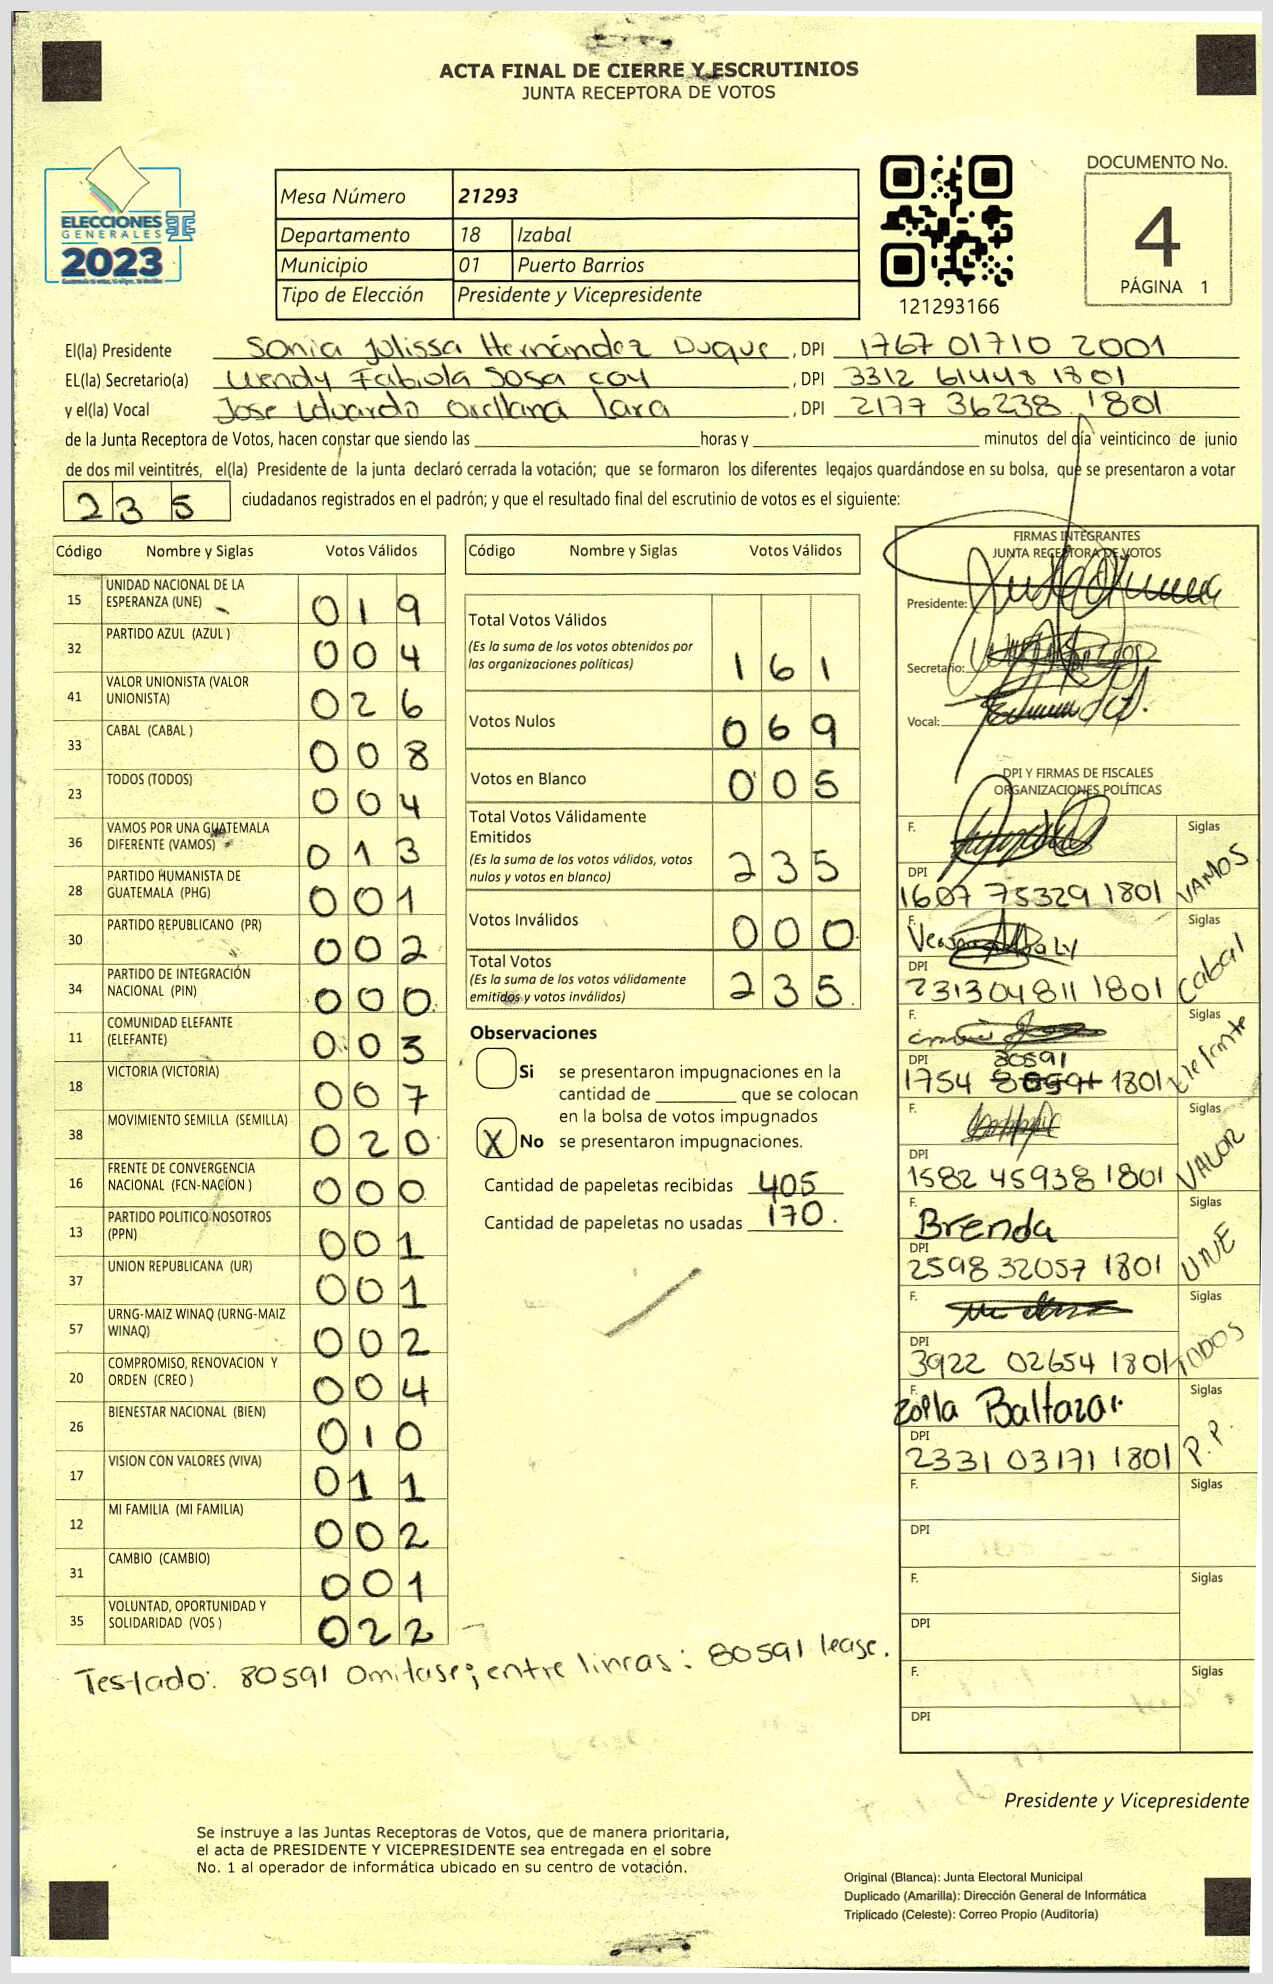 ACTA FINAL DE CIERRE Y ESCRUTINIOS
JUNTA RECEPTORA DE VOTOS
ELECCIONES
GENERALES
2023
Mesa Número 21293
Departamento 18 Izabal
Municipio 01 Puerto Barrios
Tipo de Elección Presidente y Vicepresidente
121293166
DOCUMENTO No.
4
PÁGINA 1
El(la) Presidente Sonia Julissa Hernández Duque, DPI 1767 01710 2001
EL(la) Secretario(a) Wendy Fabiola Sosa Coy, DPI 3312 61448 1801
y el(la) Vocal Jose Eduardo Orellana Lara, DPI 2177 36238 1801
de la Junta Receptora de Votos, hacen constar que siendo las horas y minutos del día veinticinco de junio
de dos mil veintitrés, el(la) Presidente de la junta declaró cerrada la votación; que se formaron los diferentes legajos guardándose en su bolsa, que se presentaron a votar
235 ciudadanos registrados en el padrón; y que el resultado final del escrutinio de votos es el siguiente:
Código Nombre y Siglas Votos Válidos
15 UNIDAD NACIONAL DE LA ESPERANZA (UNE) 019
32 PARTIDO AZUL (AZUL ) 004
41 VALOR UNIONISTA (VALOR UNIONISTA) 026
33 CABAL (CABAL ) 008
23 TODOS (TODOS) 004
36 VAMOS POR UNA GUATEMALA DIFERENTE (VAMOS) 013
28 PARTIDO HUMANISTA DE GUATEMALA (PHG) 001
30 PARTIDO REPUBLICANO (PR) 002
34 PARTIDO DE INTEGRACIÓN NACIONAL (PIN) 000
11 COMUNIDAD ELEFANTE (ELEFANTE) 003
18 VICTORIA (VICTORIA) 007
38 MOVIMIENTO SEMILLA (SEMILLA) 020
16 FRENTE DE CONVERGENCIA NACIONAL (FCN-NACION ) 000
13 PARTIDO POLITICO NOSOTROS (PPN) 001
37 UNION REPUBLICANA (UR) 001
57 URNG-MAIZ WINAQ (URNG-MAIZ WINAQ) 002
20 COMPROMISO, RENOVACION Y ORDEN (CREO ) 004
26 BIENESTAR NACIONAL (BIEN) 010
17 VISION CON VALORES (VIVA) 011
12 MI FAMILIA (MI FAMILIA) 002
31 CAMBIO (CAMBIO) 001
35 VOLUNTAD, OPORTUNIDAD Y SOLIDARIDAD (VOS ) 022
Código Nombre y Siglas Votos Válidos
Total Votos Válidos
(Es la suma de los votos obtenidos por
las organizaciones políticas) 161
Votos Nulos 069
Votos en Blanco 005
Total Votos Válidamente
Emitidos
(Es la suma de los votos válidos, votos
nulos y votos en blanco) 235
Votos Inválidos 000
Total Votos
(Es la suma de los votos válidamente
emitidos y votos inválidos) 235
Observaciones
Si se presentaron impugnaciones en la
cantidad de que se colocan
en la bolsa de votos impugnados
X No se presentaron impugnaciones.
Cantidad de papeletas recibidas 405
Cantidad de papeletas no usadas 170
FIRMAS INTEGRANTES
JUNTA RECEPTORA DE VOTOS
Presidente:
Secretario:
Vocal:
DPI Y FIRMAS DE FISCALES
ORGANIZACIONES POLÍTICAS
F. Siglas VAMOS
DPI 1607 75329 1801
F. Siglas Cabal
DPI 2313 04811 1801
F. Siglas Elefante
DPI 80591
1754 80591 1801
F. Siglas VALOR
DPI 1582 45938 1801
F. Brenda Siglas UNE
DPI 2598 32057 1801
F. Siglas TODOS
DPI 3922 02654 1801
F. Zoila Baltazar Siglas P.P.
DPI 2331 03171 1801
F. Siglas
DPI
F. Siglas
DPI
F. Siglas
DPI
Testado: 80591 Omitase; entre lineas: 80591 lease.
Presidente y Vicepresidente
Se instruye a las Juntas Receptoras de Votos, que de manera prioritaria,
el acta de PRESIDENTE Y VICEPRESIDENTE sea entregada en el sobre
No. 1 al operador de informática ubicado en su centro de votación.
Original (Blanca): Junta Electoral Municipal
Duplicado (Amarilla): Dirección General de Informática
Triplicado (Celeste): Correo Propio (Auditoría)